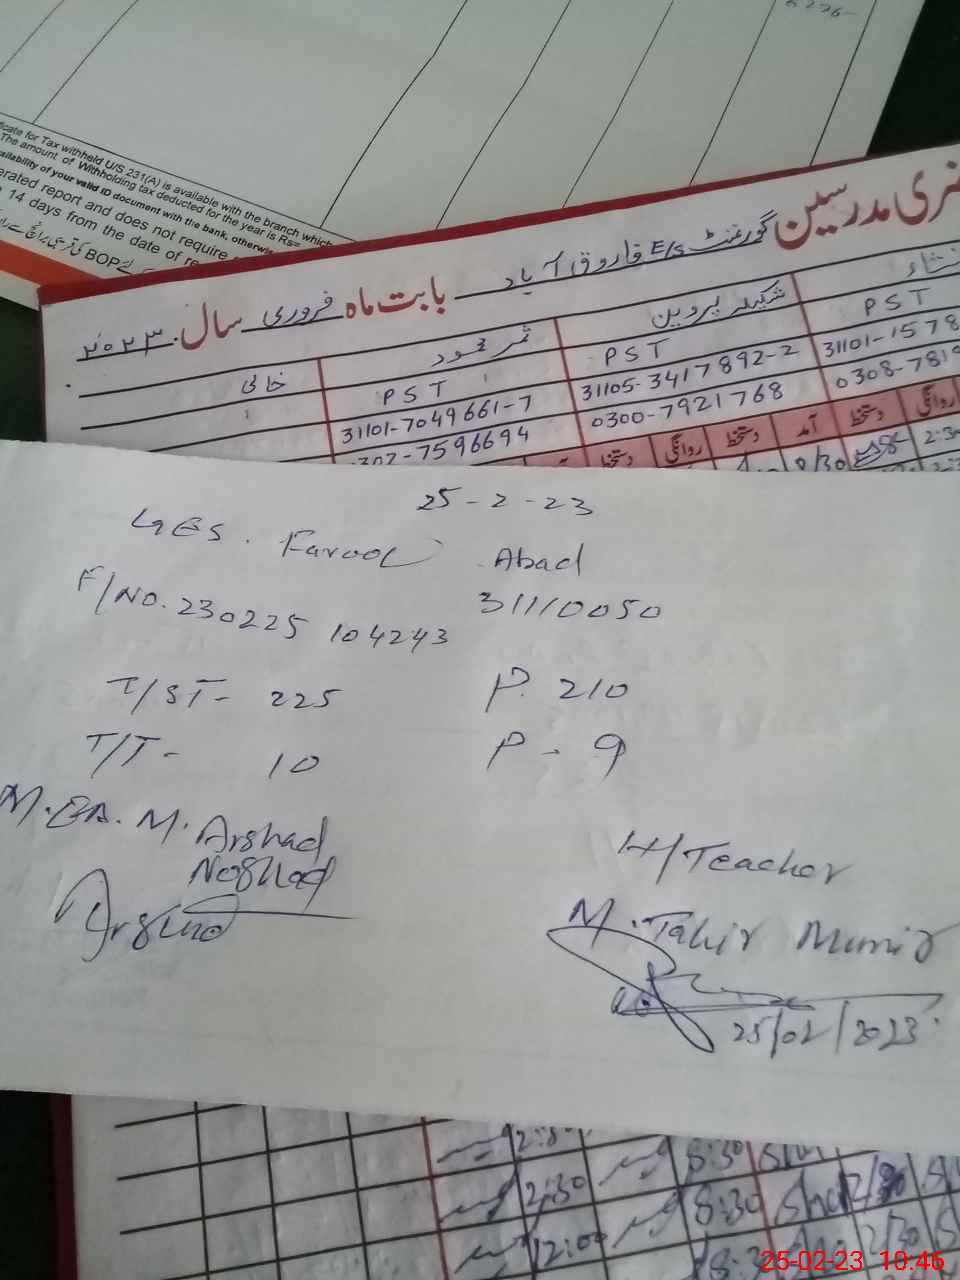 6296-
cate for Tax withheld U/S 231(A) is available with the branch which
The amount of Withholding tax deducted for the year is Rs=
ailability of your valid ID document with the bank, otherwise
erated report and does not require
14 days from the date of re
BOP کی قریبی برانچ سے را
نری مدرسین گورنمنٹ E/S فاروق آباد بابت ماہ فروری سال ۲۰۲۳
شکیلہ پروین ثمر محمود خالی
PST PST PST
31101-1578 31105-3417892-2 31101-7049661-7
0308-7819 0300-7921768 0302-7596694
روانگی دستخط آمد دستخط روانگی دستخط
8/30 2:30
25-2-23
GES. Farooq Abad
F/No. 230225 104243 31110050
T/ST- 225 P. 210
T/T- 10 P-9
M.EA. M. Arshad
Noshad
Arshad
H/Teacher
M. Tahir Munir
25/02/2023
8:30
2:30 8:30 2/30
12:00 2/30
25-02-23 10:46